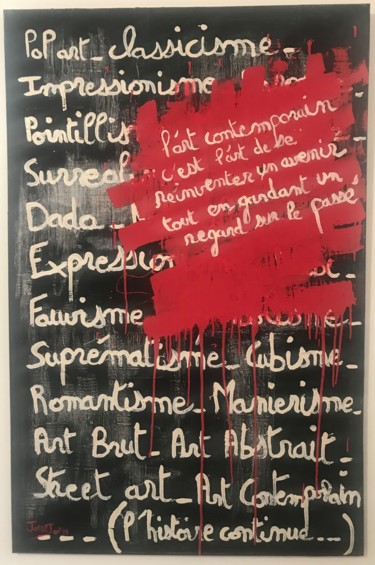 PoP art_ classicisme_
Impressionisme
Pointillis
Surreal
Dada_
Expression
Fauvisme
Suprématisme_ Cubisme_
Romantisme_ Manierisme_
Art Brut_ Art Abstrait_
Street art_ Art Contemporain
_ _ _ (l'histoire continue...)
l'art contemporain
c'est l'art de se
réinventer un avenir
tout en gardant un
regard sur le passé